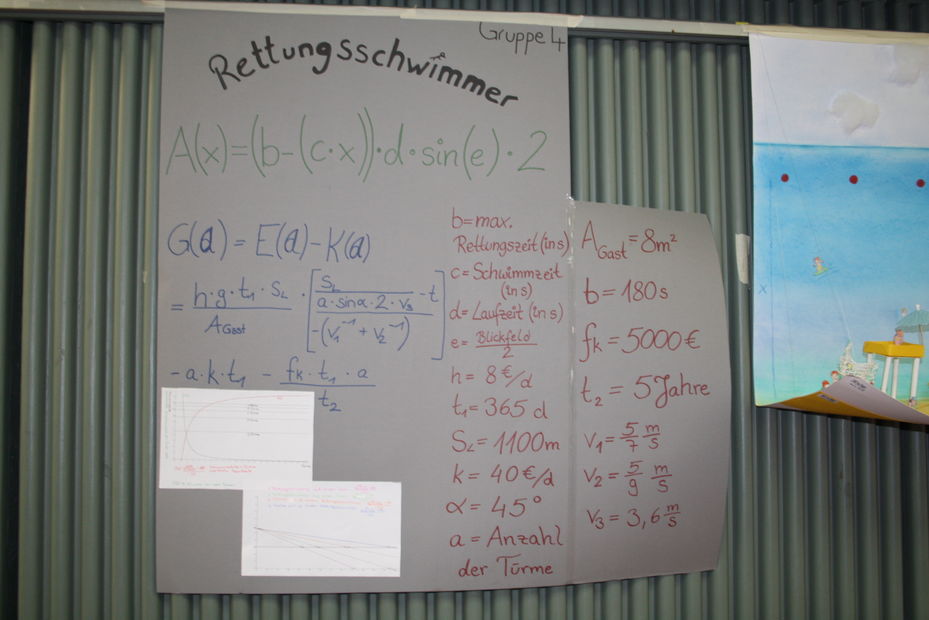 Gruppe 4
Rettungsschwimmer
A(x)=(b-(c·x))·d·sin(e)·2
G(a) = E(a)-K(a)
= h·g·t₁·S_L / A_Gast · [ (S_L / (a·sinα·2·v₃) - t) / (-(v₁⁻¹ + v₂⁻¹)) ]
- a·k·t₁ - f_k·t₁·a / t₂
b=max.
Rettungszeit (in s)
c=Schwimmzeit
(in s)
d=Laufzeit (in s)
e= Blickfeld / 2
h = 8€/d
t₁=365 d
S_L=1100m
k = 40€/d
α = 45°
a = Anzahl
der Türme
A_Gast = 8m²
b = 180s
f_k = 5000€
t₂ = 5 Jahre
v₁ = 5/7 m/s
v₂ = 5/9 m/s
v₃ = 3,6 m/s